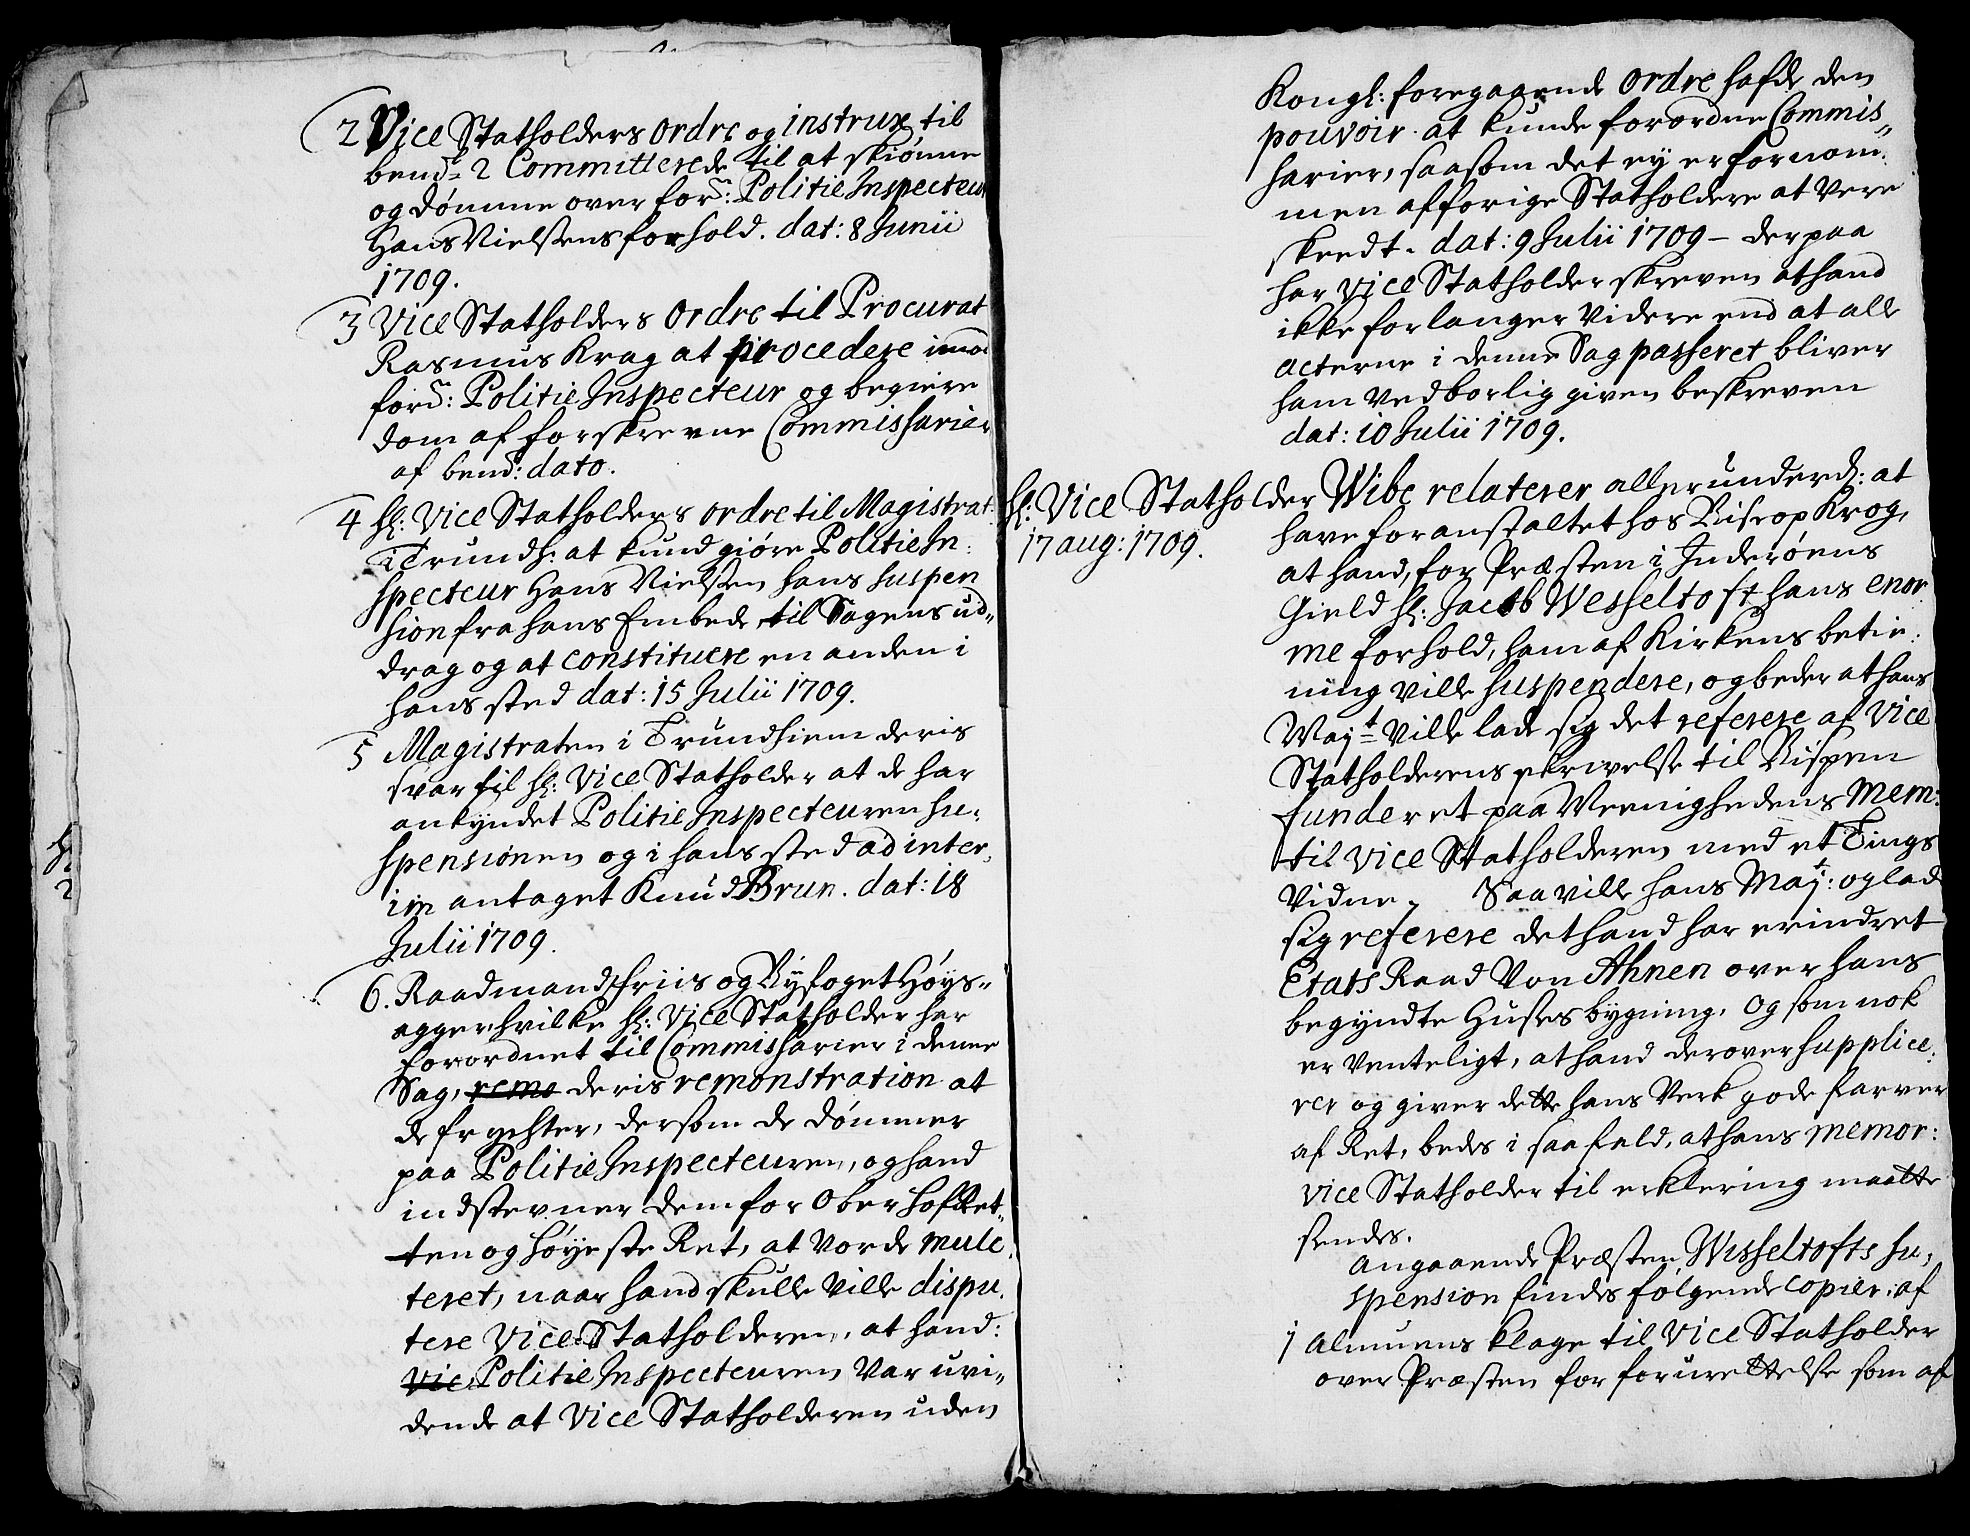 2 Vice Statholders ordre og instrux til
bend: 2 Committerede til at skiønne
og dømme over ford: Politie Inspecteur
Hans Nielsens forhold. dat: 8 Junii
1709.
3 Vice Statholders ordre til Procurat
Rasmus Krag at procedere imod
ford: Politie Inspecteur og begiere
dom af forskrevne Commissarier
af bend: dato.
4 hl: Vice Statholders ordre til Magistrat:
i Trundh: at kundgiøre Politie In:
specteur Hans Nielsen hans suspen
sion fra hans Embede til Sagens ud„
drag og at constituere en anden i
hans sted dat: 15 Julii 1709.
5 Magistraten i Trundhiem deris
svar til hl: Vice Statholder at de har
ankyndet Politie Inspecteuren su„
spensionen og i hans sted ad inter„
im antaget Knud Brun. dat: 18
Julii 1709.
6. Raadmand Friis og Byfoget Høys„
agger, hvilke hl: Vice Statholder har
forordnet til Commissarier i denne
Sag, remo deris remonstration at
de frychter, dersom de dømmer
paa Politie Inspecteuren, og hand
indstevner dem for Oberhofret„
ten og høyeste Ret, at vorde mulc„
teret, naar hand skulle ville dispu„
tere Vice Statholderen, at hand:
Vic Politie Inspecteuren var uvi„
dende at Vice Statholderen uden
Kongl: foregaaende ordre hafde den
pouvoir at kunde forordne Commis„
sarier, saasom det ey er fornom:
men af forige Statholdere at vere
skeedt. dat: 9 Julii 1709 – derpaa
har Vice Statholder skreven at hand
ikke forlanger videre end at alle
acterne i denne Sag passeret bliver
ham vedborlig given beskreven
dat: 10 Julii 1709.
hl: Vice Statholder Wibe relaterer allerunderd: at
17 aug: 1709.
have foranstaltet hos Biscop Krog,
at hand, for Præsten i Inderøens
Gield hl: Jacob Wesseltoft hans enor
me forhold, ham af Kirkens betie:
ning ville suspendere, og beder at hans
Majt: ville lade sig det referere af Vice
Statholderens skrivelse til Bispen
funderet paa Meenighedens Mem:
til Vice Statholderen med et Tings
Vidne. Saa ville hans Majt: og lade
sig referere det hand har erindret
Etats Raad Von Ahnen over hans
begyndte Huses bygning. Og som nok
er venteligt, at hand derover supplice:
rer og giver dette hans Verk gode farver
af Ret, bedes i saa fald, at hans memor:
Vice Statholder til erklering maatte
sendes.
Angaaende Præsten Wesseltofts su„
spension findes følgende copier: af
1 Almuens klage til Vice Statholder
over Præsten for forurettelse som af